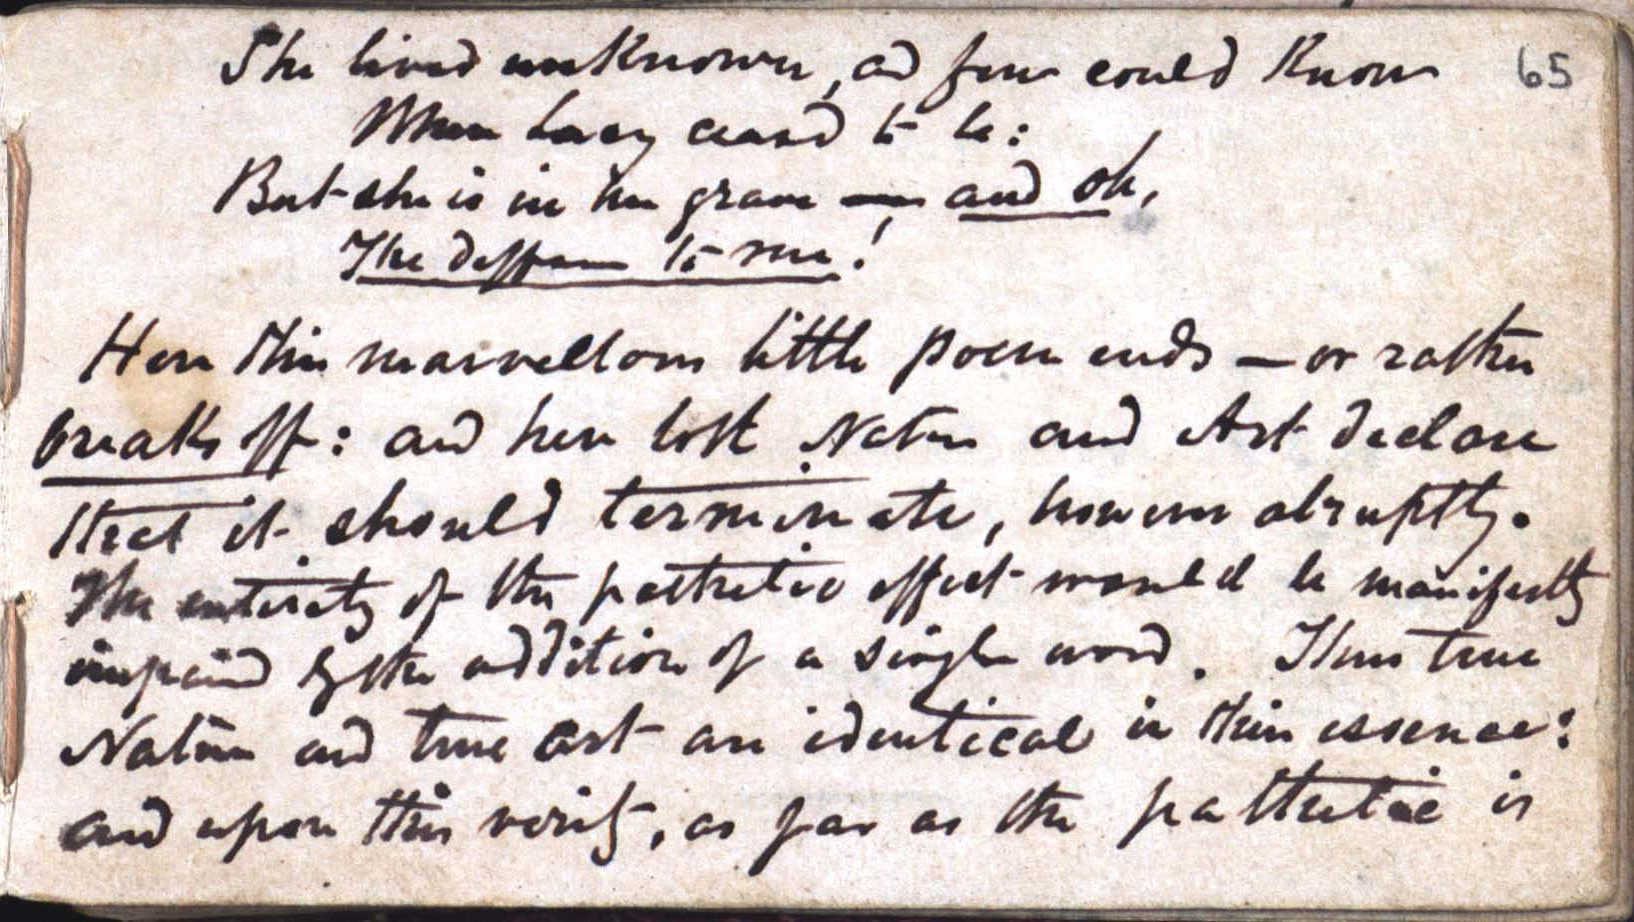 She lived unknown, and few could know
65
When Lucy ceasd to be:
But she is in her grave — and oh,
The difference to me!
Here this marvellous little poem ends — or rather
breaks off: and here both Nature and Art declare
that it should terminate, however abruptly.
The entirety of the pathetic effect would be manifestly
impaired by the addition of a single word. Thus true
Nature and true Art are identical in their essence:
and upon this verity, as far as the pathetic is